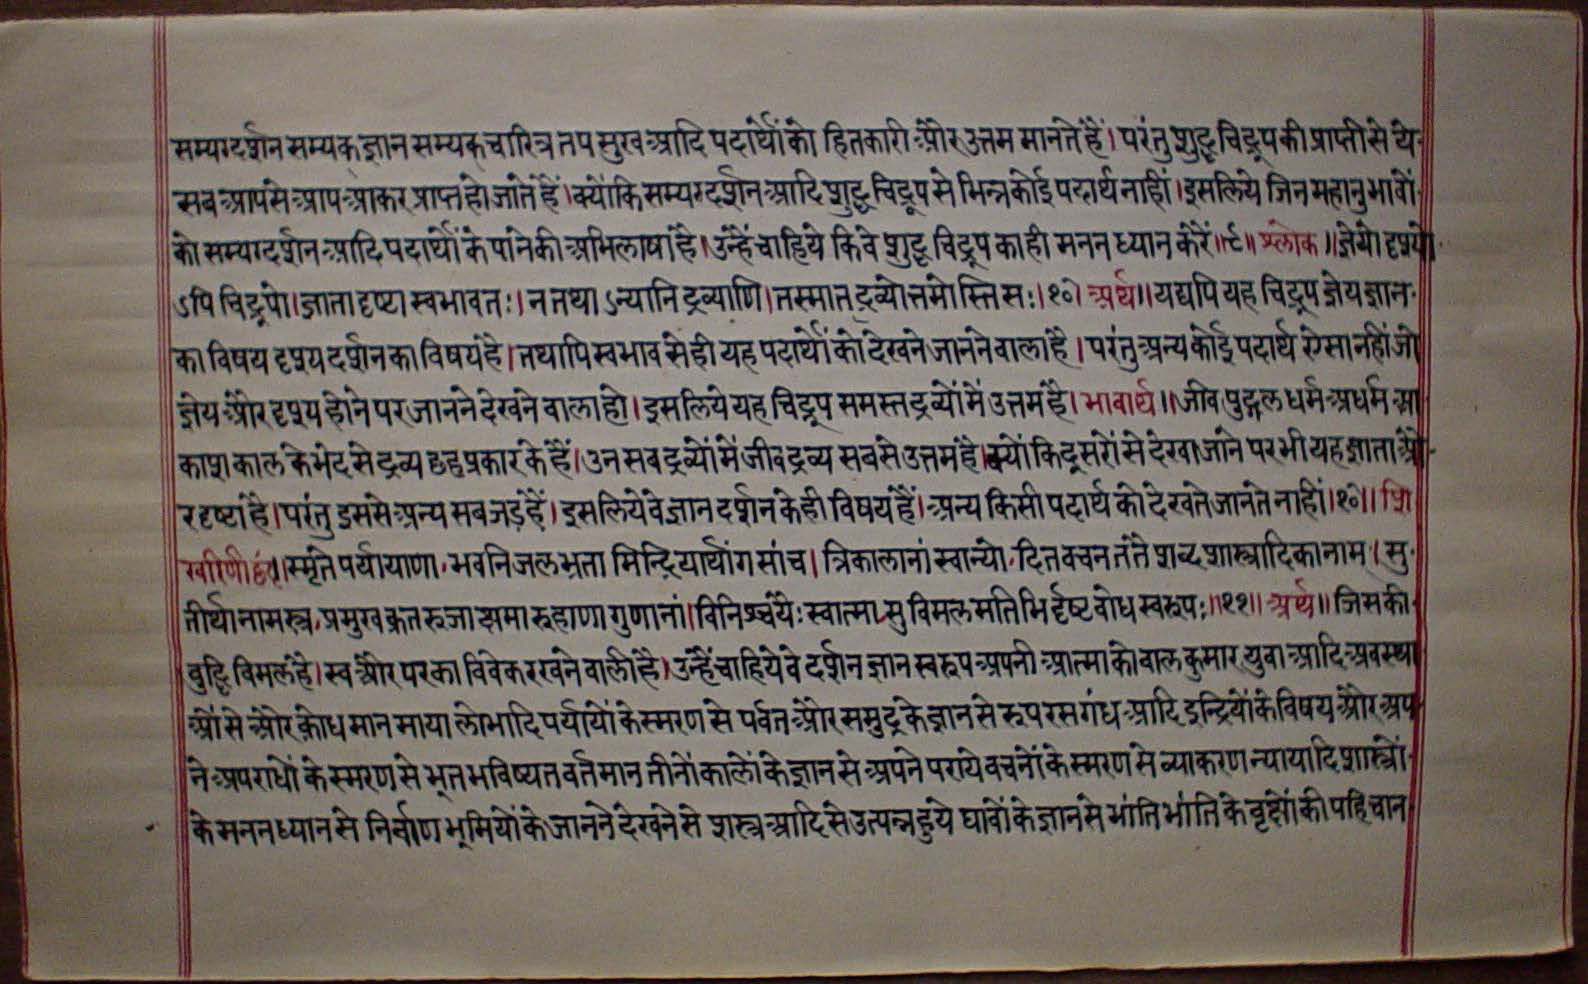 सम्यग्दर्शन सम्यक ज्ञान सम्यक चारित्र तप सुख आदि पदार्थों को हितकारी और उत्तम मानते हैं। परंतु शुद्ध चिद्रूप की प्राप्ती से ये
सब आपसे आप आकर प्राप्त हो जाते हैं। क्यों कि सम्यग्दर्शन आदि शुद्ध चिद्रूप से भिन्न कोई पदार्थ नाहीं। इसलिये जिन महानुभावों
को सम्यग्दर्शन आदि पदार्थों के पाने की अभिलाषा है। उन्हें चाहिये कि वे शुद्ध चिद्रूप का ही मनन ध्यान करें॥९॥ श्लोक॥ ज्ञेयो दृश्यो
ऽपि चिद्रूपो। ज्ञाता दृष्टा स्वभावतः। न तथाऽन्यानि द्रव्याणि। तस्मात् द्रव्योत्तमोस्ति सः।१०। अर्थ॥ यद्यपि यह चिद्रूप ज्ञेय ज्ञान
का विषय दृश्य दर्शन का विषय है। तथापि स्वभाव से ही यह पदार्थों को देखने जानने वाला है। परंतु अन्य कोई पदार्थ ऐसा नहीं जो
ज्ञेय और दृश्य होने पर जानने देखने वाला हो। इसलिये यह चिद्रूप समस्त द्रव्यों में उत्तम है। भावार्थ॥ जीव पुद्गल धर्म अधर्म आ
काश काल के भेद से द्रव्य छह प्रकार के हैं। उन सब द्रव्यों में जीव द्रव्य सबसे उत्तम है। क्यों कि दूसरों से देखा जाने पर भी यह ज्ञाता औ
र दृष्टा है। परंतु इससे अन्य सब जड़ हैं। इसलिये वे ज्ञान दर्शन के ही विषय हैं। अन्य किसी पदार्थ को देखते जानते नाहीं।१०॥ शि
खरिणी छंद॥ स्मृते पर्यायाणा, भवनि जलभ्रता मिन्द्रियार्थांगसां च। त्रिकालानां स्वान्यो, दित वचन तंते शब्द शास्त्रादिकानाम्। सु
तीर्थानामस्त्र, प्रमुख कृत रुजा क्ष्मारुहाणा गुणानां। विनिश्चयेः स्वात्मा सु विमल मतिभिर्दृष्ट बोध स्वरूपः॥११॥ अर्थ॥ जिसकी
बुद्धि विमल है। स्व और पर का विवेक रखने वाली है। उन्हें चाहिये वे दर्शन ज्ञान स्वरूप अपनी आत्मा को बाल कुमार युवा आदि अवस्था
ओं से और क्रोध मान माया लोभादि पर्यायों के स्मरण से पर्वत और समुद्र के ज्ञान से रूप रस गंध आदि इन्द्रियों के विषय और अप
ने अपराधों के स्मरण से भूत भविष्यत वर्तमान तीनों कालों के ज्ञान से अपने पराये वचनों के स्मरण से व्याकरण न्यायादि शास्त्रों
के मनन ध्यान से निर्वाण भूमियों के जानने देखने से शस्त्र आदि से उत्पन्न हुये घावों के ज्ञान से भांति भांति के वृक्षों की पहिचान